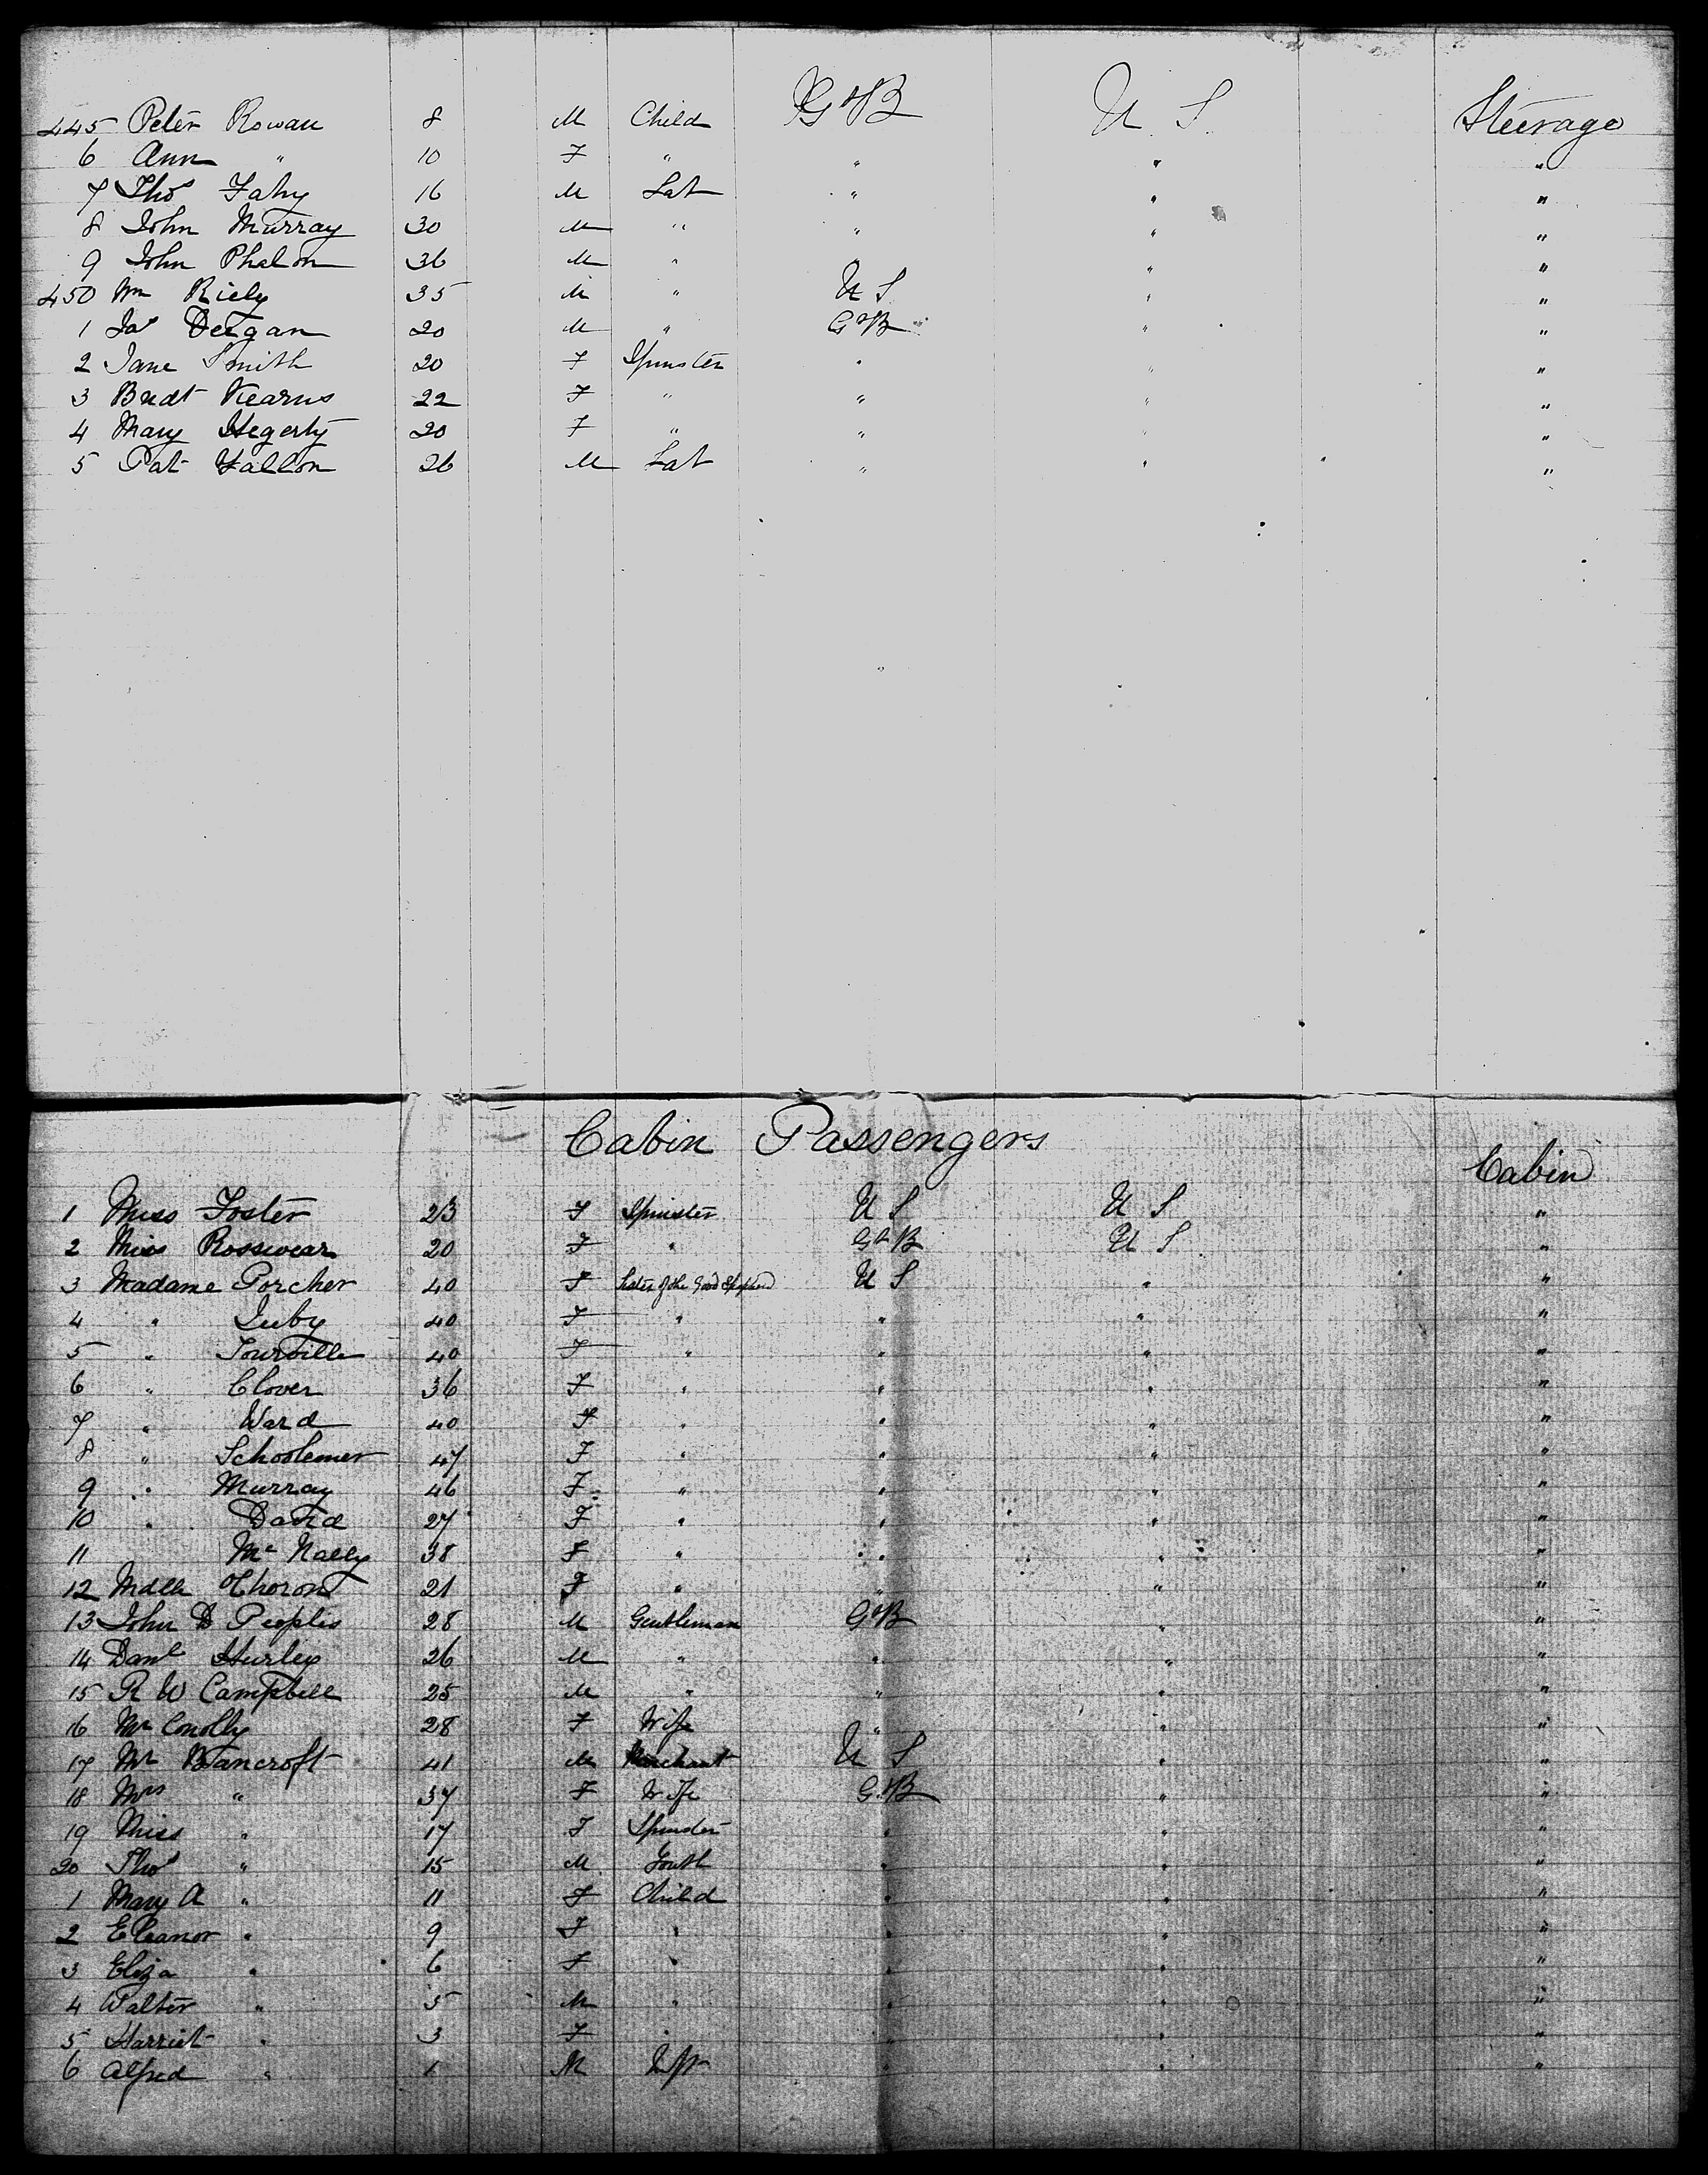 445 Peter Rowan 8 M Child Gt B U S Steerage
6 Ann " 10 F " " " "
7 Thos Fahy 16 M Lab " " "
8 John Murray 30 M " " " "
9 John Phelon 36 M " " "
450 Wm Riely 35 M " U S " "
1 Jas Deegan 20 M " Gt B " "
2 Jane Smith 20 F Spinster " " "
3 Bridt Kearns 22 F " " " "
4 Mary Hegerty 20 F " " " "
5 Pat Fallon 26 M Lab " " "
Cabin Passengers
Cabin
1 Miss Foster 23 F Spinster U S U S "
2 Miss Rosswear 20 F " Gt B U S "
3 Madame Porcher 40 F Sister of the Good Shepherd U S " "
4 " Luby 40 F " " " "
5 " Tourville 40 F " " " "
6 " Clover 36 F " " " "
7 " Ward 40 F " " " "
8 " Schoolemer 47 F " " " "
9 " Murray 46 F " " " "
10 " David 27 F " " " "
11 Mc Nally 38 F " " " "
12 Mdlle Thoron 21 F " " " "
13 John D Peoples 28 M Gentleman Gt B " "
14 Danl Hurley 26 M " " " "
15 R W Campbell 25 M " " " "
16 Mrs Conolly 28 F Wife " " "
17 Mr Bancroft 41 M Merchant U S " "
18 Mrs " 37 F Wife Gt B " "
19 Miss " 17 F Spinster " " "
20 Thos " 15 M Youth " " "
1 Mary A " 11 F Child " " "
2 Eleanor " 9 F " " " "
3 Eliza " 6 F " " " "
4 Walter " 5 M " " " "
5 Harriet " 3 F " " " "
6 Alfred " 1 M Inft " " "